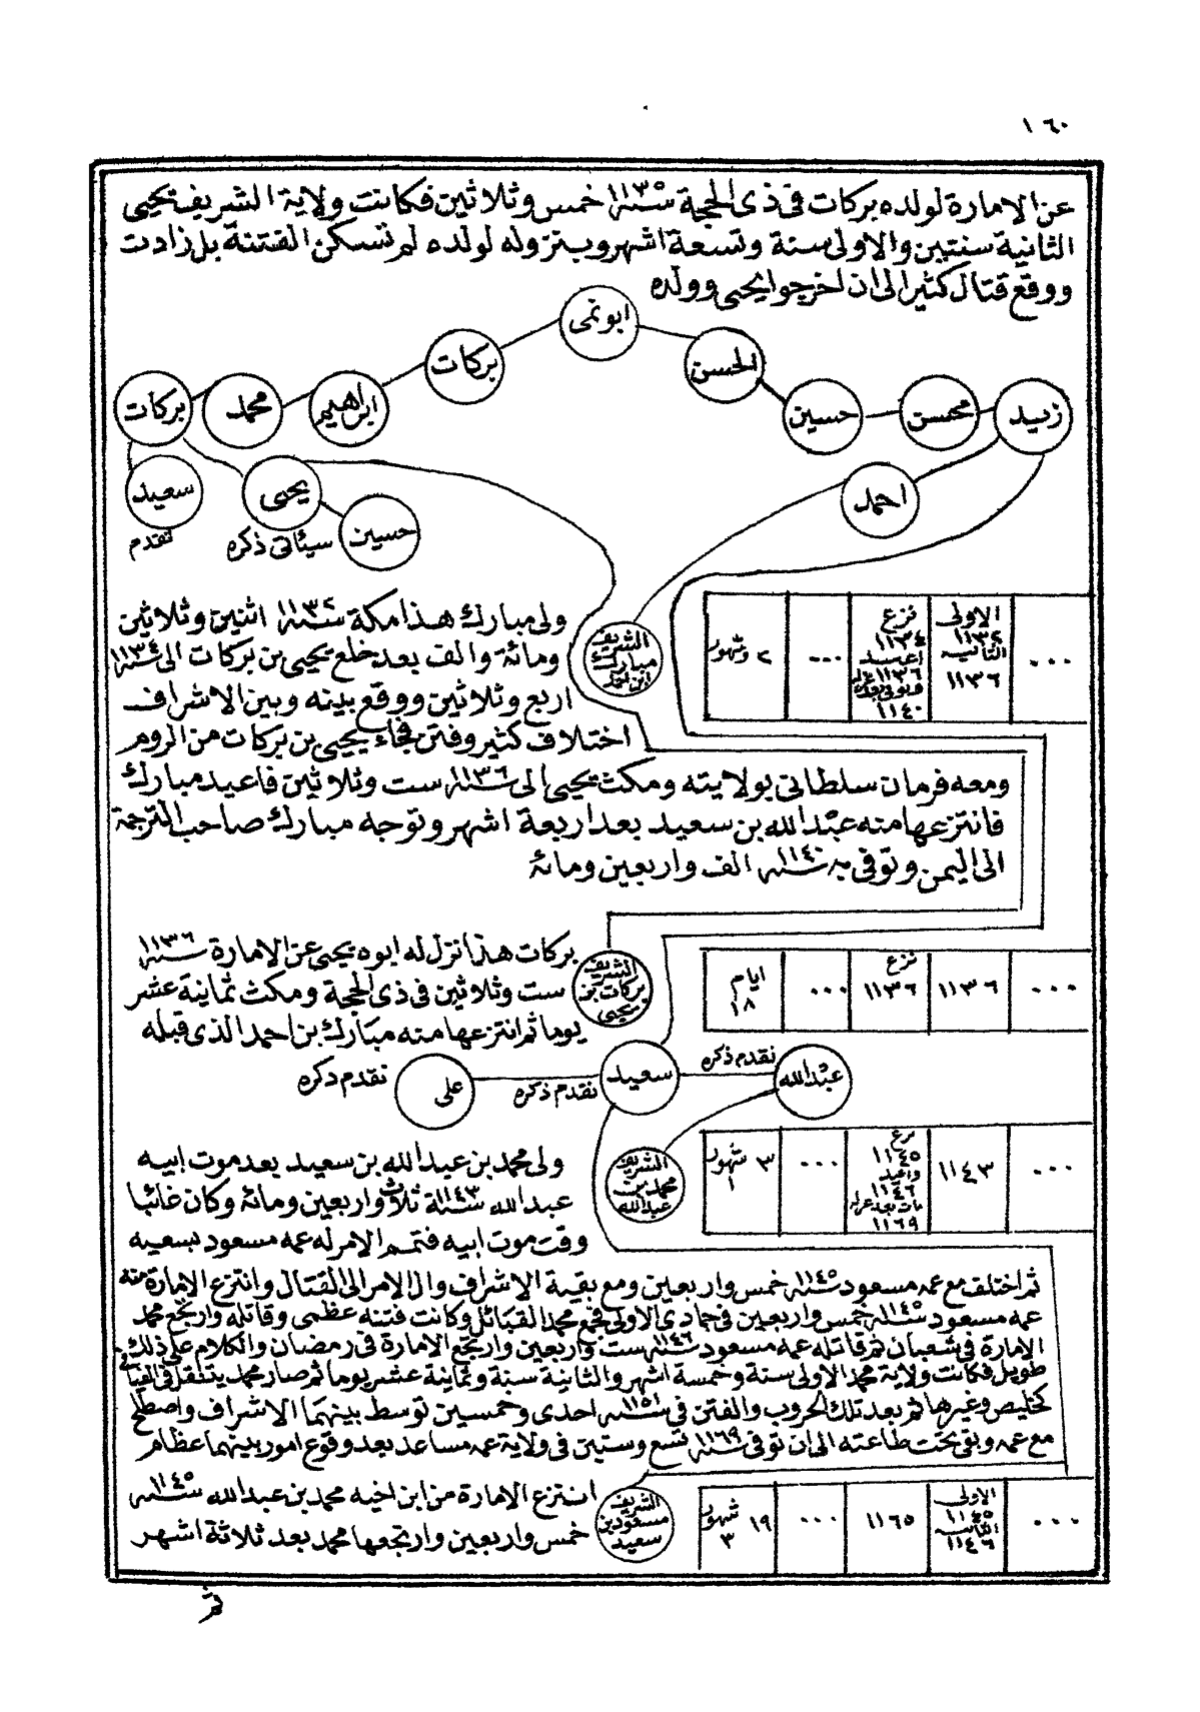 ١٦٠
عن الامارة لولده بركات فى ذى الحجة سنة ١١٣٥ خمس وثلاثين فكانت ولاية الشريف يحيى
الثانية سنتين والاولى سنة وتسعة اشهر وبنزوله لولده لم تسكن الفتنة بل زادت
ووقع قتال كثير الى ان اخرجوا يحيى وولده
ابونمى
بركات
الحسن
بركات
محمد
ابراهيم
حسين
محسن
زيد
سعيد
تقدم
يحيى
حسين
سيئاتى ذكره
احمد
الشريف
مبارك
ابن احمد
٢ وشهور
...
نزع
١١٣٤
اعيد
١١٣٦
١١٤٠
الاولى
١١٣٢
الثانيه
١١٣٦
...
ولى مبارك هذا مكة سنة ١١٣٢ اثنين وثلاثين
ومائة والف بعد خلع يحيى بن بركات الى سنة ١١٣٤
اربع وثلاثين ووقع بينه وبين الاشراف
اختلاف كثير وفتن فجاء يحيى بن بركات من الروم
ومعه فرمان سلطانى بولايته ومكث يحيى الى سنة ١١٣٦ ست وثلاثين فاعيد مبارك
فانتزعها منه عبدالله بن سعيد بعد اربعة اشهر وتوجه مبارك صاحب الترجمة
الى اليمن وتوفى به سنة ١١٤٠ الف واربعين ومائة
الشريف
بركات بن
يحيى
ايام
١٨
...
نزع
١١٣٦
١١٣٦
...
بركات هذا نزل له ابوه يحيى عن الامارة سنة ١١٣٦
ست وثلاثين فى ذى الحجة ومكث ثمانية عشر
يوما ثم انتزعها منه مبارك بن احمد الذى قبله
عبدالله
تقدم ذكره
سعيد
تقدم ذكره
على
تقدم ذكره
الشريف
محمد بن
عبدالله
٣ شهور
١
...
نزع
١١٤٥
واعيد
١١٤٦
مات بعد عزله
١١٦٩
١١٤٣
...
ولى محمد بن عبدالله بن سعيد بعد موت ابيه
عبدالله سنة ١١٤٣ ثلاث واربعين ومائه وكان غائبا
وقت موت ابيه فتمم الامر له عمه مسعود بن سعيد
ثم اختلف مع عمه مسعود سنة ١١٤٥ خمس واربعين ومع بقية الاشراف وال الامر الى القتال وانتزع الامارة منه
عمه مسعود سنة ١١٤٥ خمس واربعين فى جمادى الاولى فجمع محمد القبائل وكانت فتنه عظمى وقاتله وارتجع محمد
الامارة فى شعبان ثم قاتله عمه مسعود سنة ١١٤٦ ست واربعين وارتجع الامارة فى رمضان والكلام على ذلك
طويل فكانت ولاية محمد الاولى سنة وخمسة اشهر والثانية سنة وثمانية عشر يوما ثم صار محمد يتنقل فى القبائل
كخليص وغيرها ثم بعد تلك الحروب والفتن فى سنة ١١٥١ احدى وخمسين توسط بينهما الاشراف واصطلح
مع عمه وبقى تحت طاعته الى ان توفى سنة ١١٦٩ تسع وستين فى ولاية عمه مساعد بعد وقوع امور بينهما عظام
الشريف
مسعود بن
سعيد
١٩ شهور
٣
...
١١٦٥
الاولى
١١٤٥
الثانيه
١١٤٦
...
انتزع الامارة من ابن اخيه محمد بن عبدالله سنة ١١٤٥
خمس واربعين وارتجعها محمد بعد ثلاثة اشهر
ثم